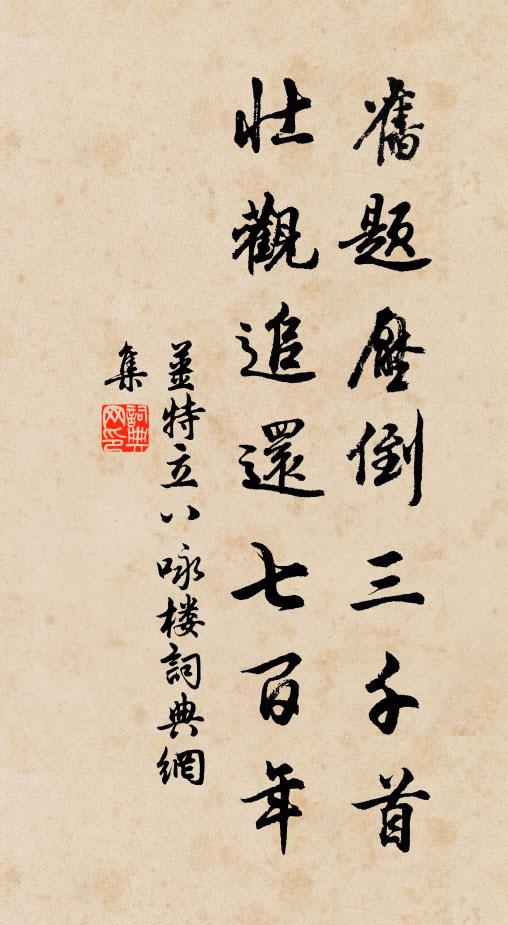 舊題壓倒三千首
壯觀追還七百年
姜特立八咏楼詞典網
集
詞典网印